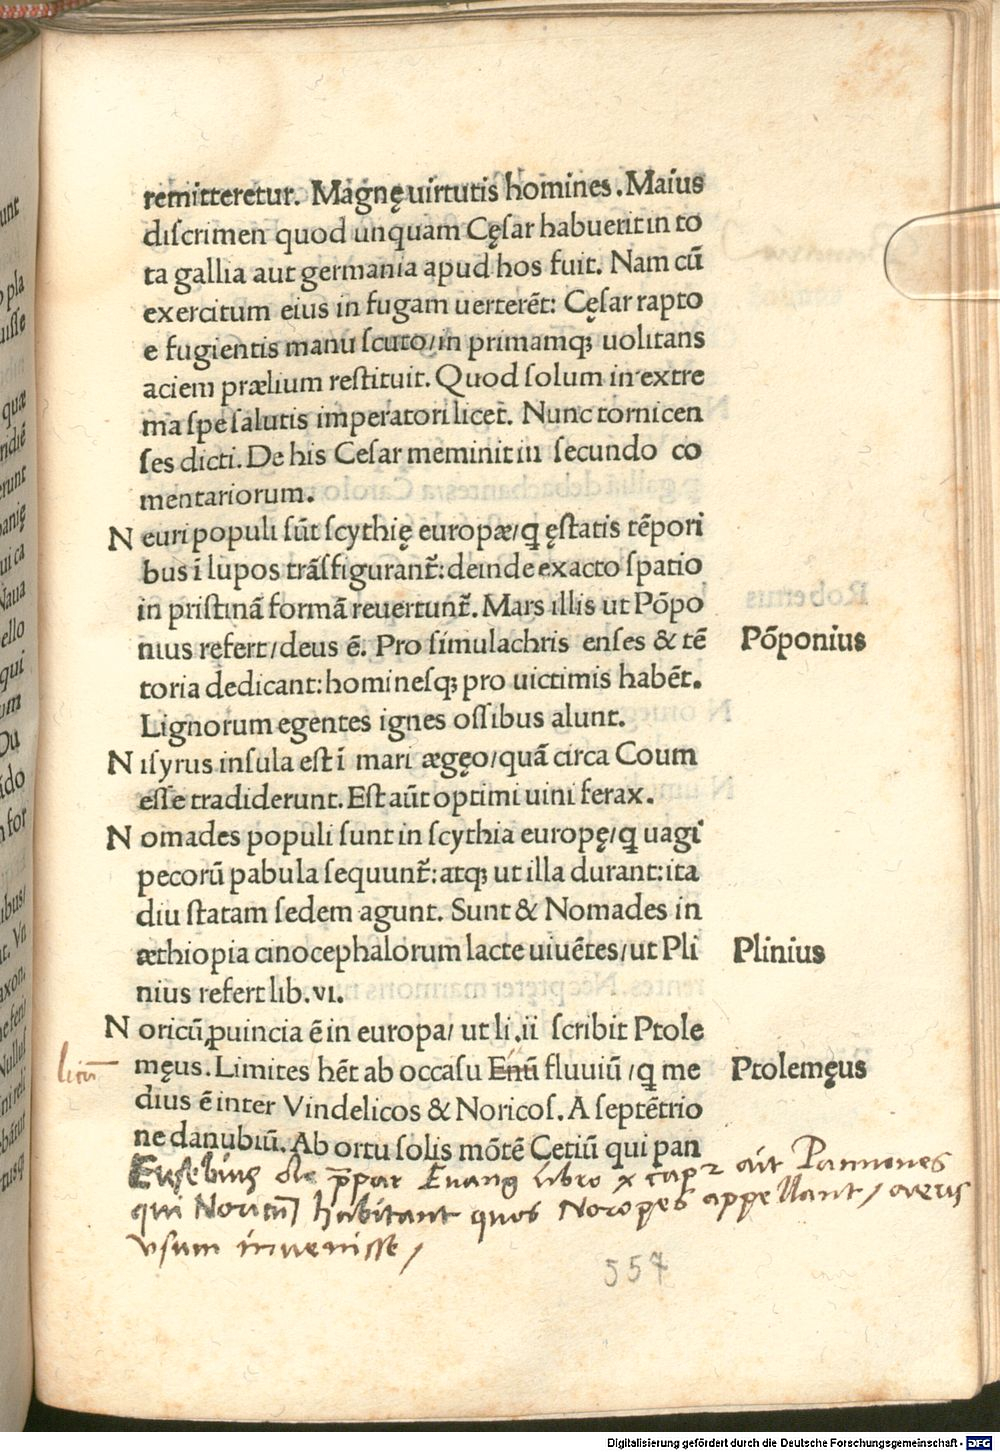 remitteretur. Magnę uirtutis homines. Maius
discrimen quod unquam Cęsar habuerit in to
ta gallia aut germania apud hos fuit. Nam cũ
exercitum eius in fugam uerterẽt: Cęsar rapto
e fugientis manu scuto/in primamq; uolitans
aciem prælium restituit. Quod solum in extre
ma spe salutis imperatori licet. Nunc tornicen
ses dicti. De his Cesar meminit in secundo co
mentariorum.
N euri populi sũt scythię europæ/q̃ ęstatis tẽpori
bus ĩ lupos trãsfigurant̃: deinde exacto spatio
in pristinã formã reuertunt̃. Mars illis ut Põpo
nius refert/deus ẽ. Pro simulachris enses & tẽ
Põponius
toria dedicant: hominesq; pro uictimis habẽt.
Lignorum egentes ignes ossibus alunt.
N isyrus insula est ĩ mari ægęo/quã circa Coum
esse tradiderunt. Est aũt optimi uini ferax.
N omades populi sunt in scythia europę/q̃ uagi
pecorũ pabula sequunt̃: atq; ut illa durant: ita
diu statam sedem agunt. Sunt & Nomades in
æthiopia cinocephalorum lacte uiuẽtes/ut Pli
Plinius
nius refert lib. vi.
N oricũ ꝓuincia ẽ in europa/ ut li. ii scribit Ptole
męus. Limites hẽt ab occasu Enũ fluuiũ/q̃ me
Ptolemęus
dius ẽ inter Vindelicos & Noricos. A septẽtrio
ne danubiũ. Ab ortu solis mõtẽ Cetiũ qui pan
Eusebius de p̄par Euang libro x cap 2 ait Pannones
qui Noricũ habitant quos Noropes appellant / aeris
vsum invenisse /
557
Digitalisierung gefördert durch die Deutsche Forschungsgemeinschaft - DFG